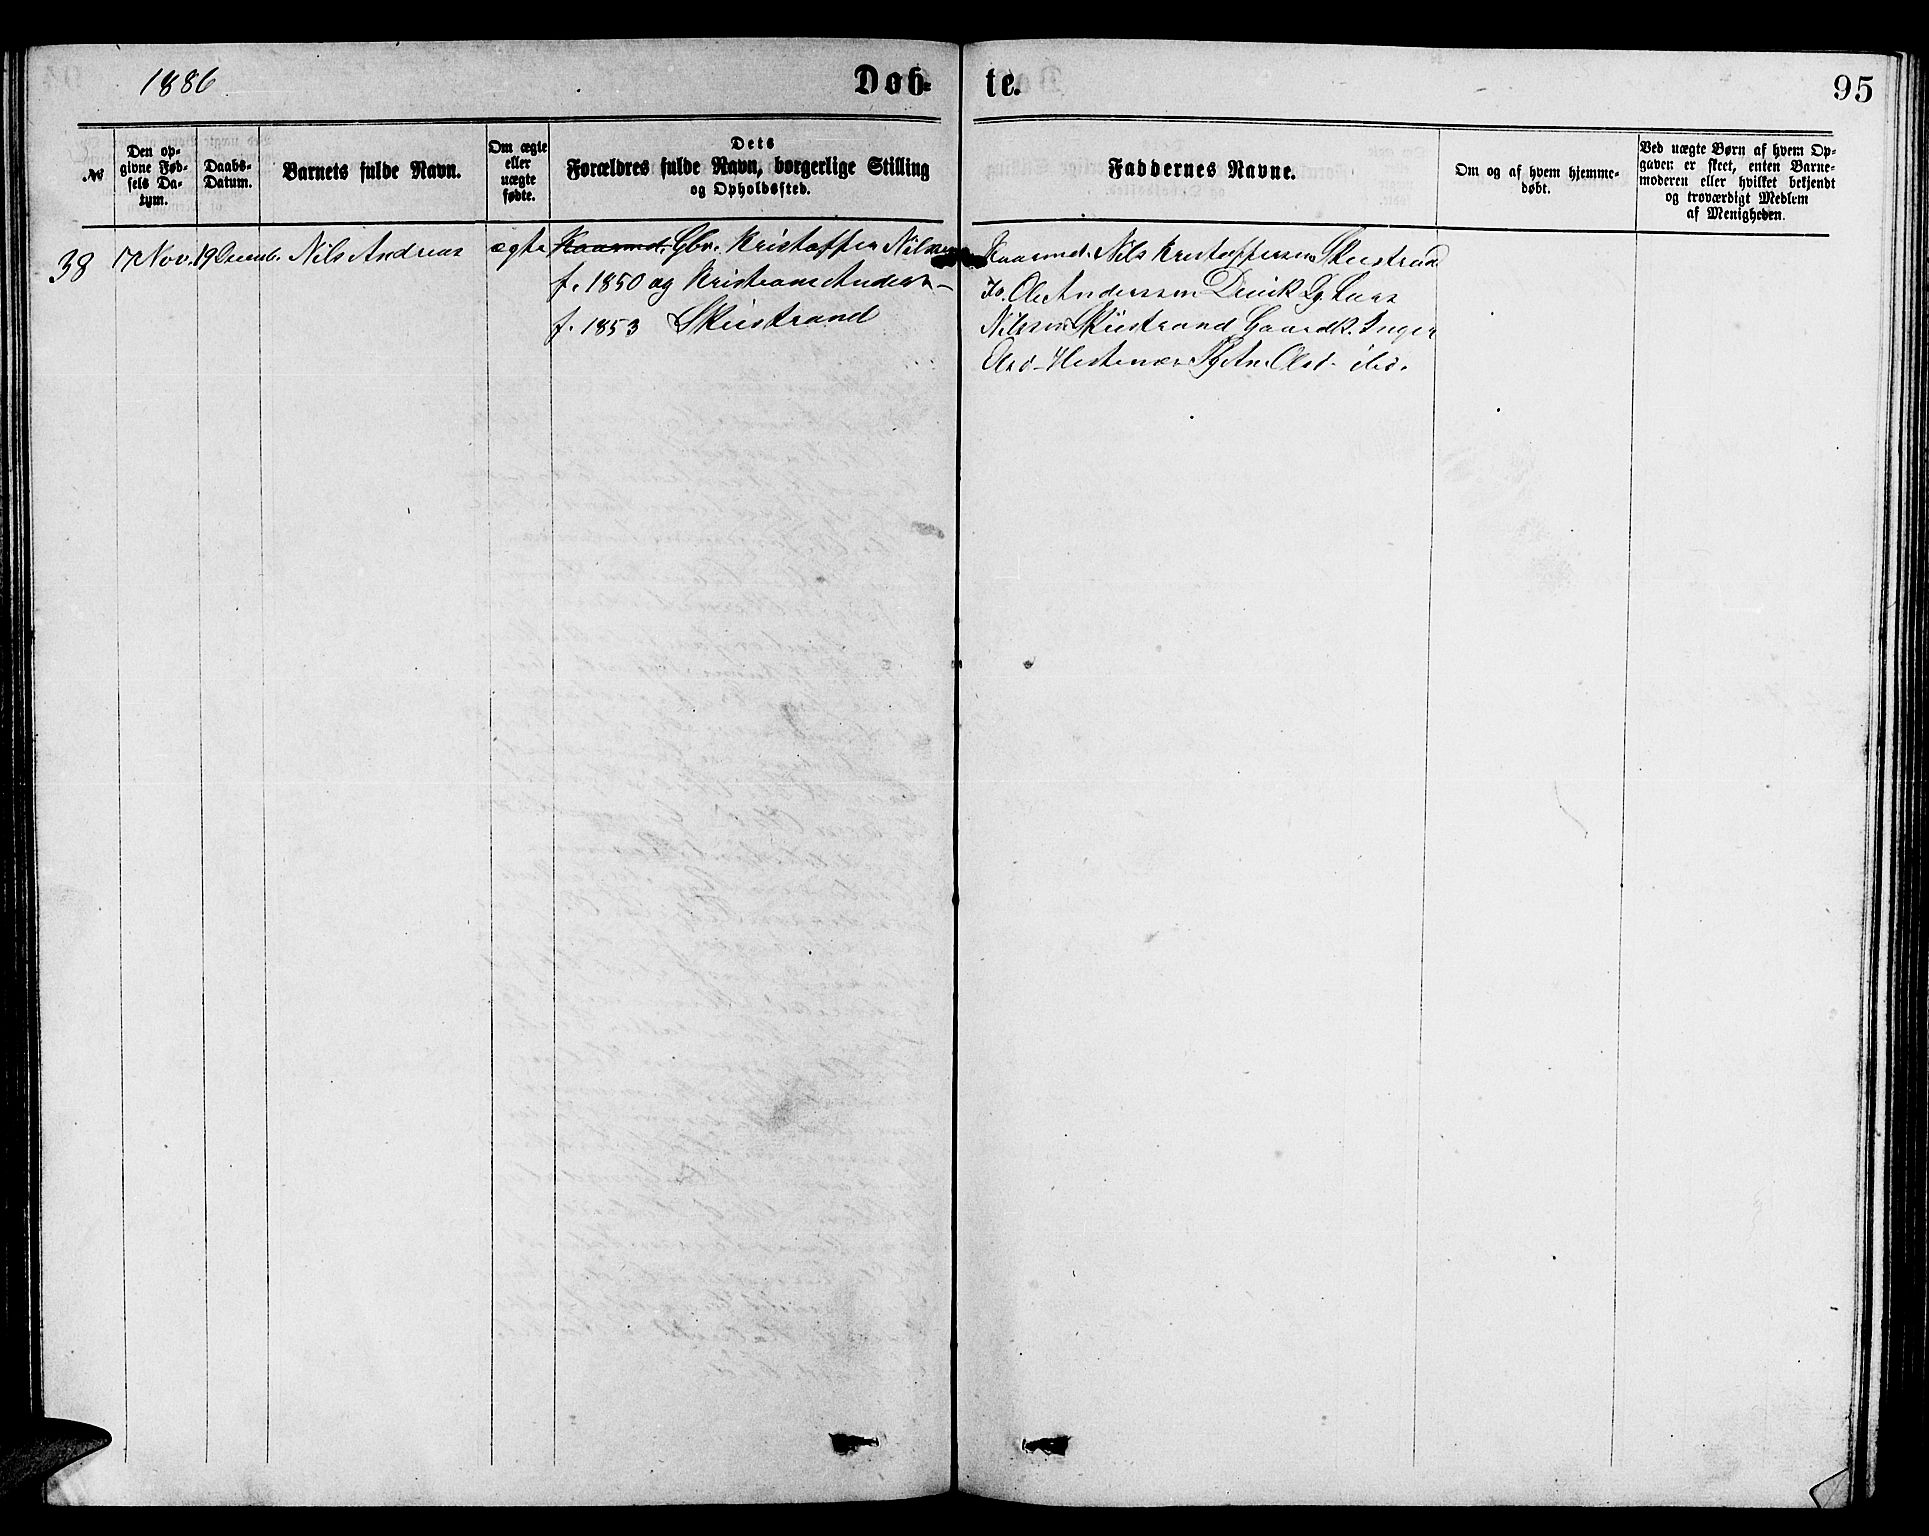 1886
Døb-
te.
95
№
Den op-
givne Fød-
sels Da-
tum.
Daabs-
Datum.
Barnets fulde Navn.
Om ægte
eller
uægte
fødte.
Dets
Forældres fulde Navn, borgerlige Stilling
og Opholdssted.
Faddernes Navne.
Om og af hvem hjemme-
døbt.
Ved uægte Børn af hvem Op-
gaven er skeet, enten Barne-
moderen eller hvilket bekjendt
og troværdigt Medlem
af Menigheden.
38
17 Nov.
19 Decemb.
Nils Andreas
ægte
Kaarmd. Gbr. Kristoffer Nilsen
f. 1850 og Kristiane Andersd-
f. 1853 Skeistrand
Kaarmd. Nils Kristoffersen Skeistrand
Ole Anderssen Lars
Nilssen Skeistrand Gaardk. Inger
Olsd- Hestenæs Pg An. Olsd- ibid.